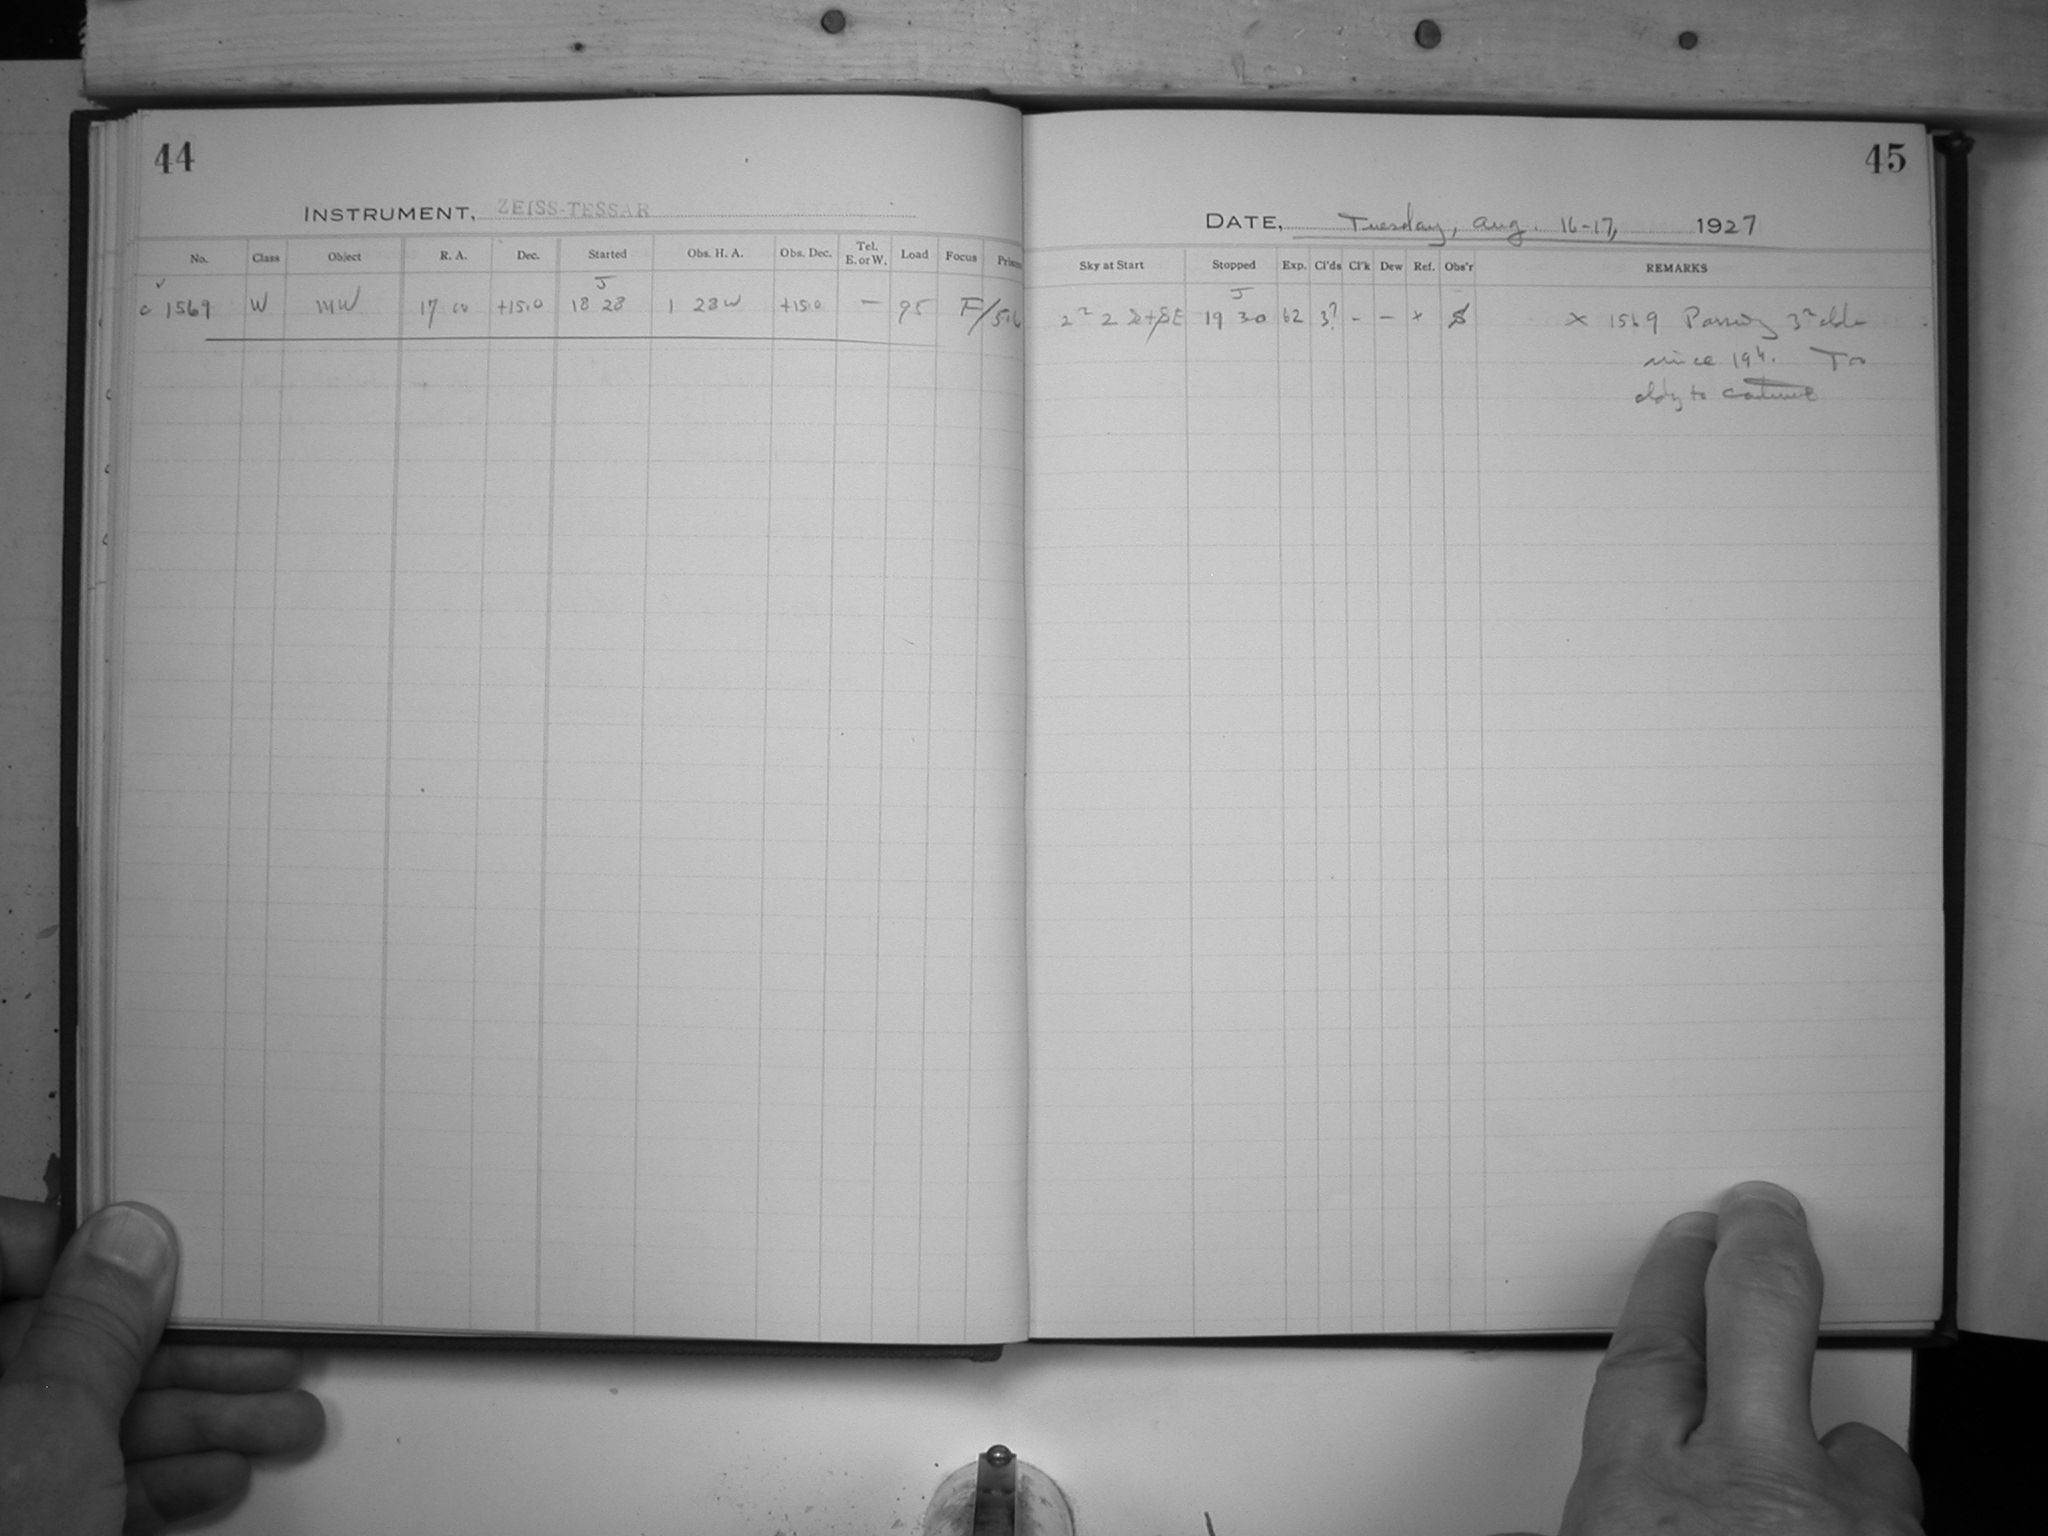 44
INSTRUMENT, ZEISS-TESSAR
No. Class Object R. A. Dec. Started Obs. H. A. Obs. Dec. Tel. E. or W. Load Focus
c 1569 W MW 17 00 +15.0 18 28 1 28 W +15.0 — 95 F/5.6
45
DATE, Tuesday, Aug. 16-17, 1927
Sky at Start Stopped Exp. Cl'ds Cl'k Dew Ref. Obs'r REMARKS
19 30 62 3? - - x
x 1569 Passing 3² clds
since 19h. Too
cldy to continue